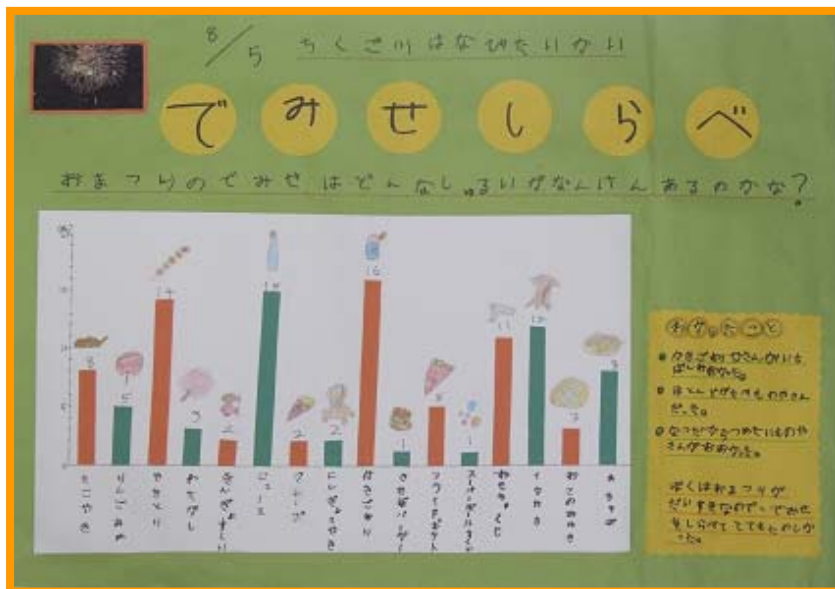 8/5 ちくご川はなびたいかい
でみせしらべ
おまつりのでみせはどんなしゅるいがなんけんあるのかな?
8
5
14
3
2
15
2
2
16
1
5
1
11
12
3
8
たこやき
りんごあめ
やきとり
わたがし
きんぎょすくい
ジュース
クレープ
にんぎょうやき
かきごおり
フライドポテト
スーパーボールすくい
おもちゃくじ
イカやき
おこのみやき
わかったこと
かきごおりやさんがいち
ばんおおかった。
ほとんどがたべものやさん
だった。
なつだからつめたいものや
さんがおおかった。
ぼくはおまつりが
だいすきなので、でみせ
をしらべてとてもたのしか
った。